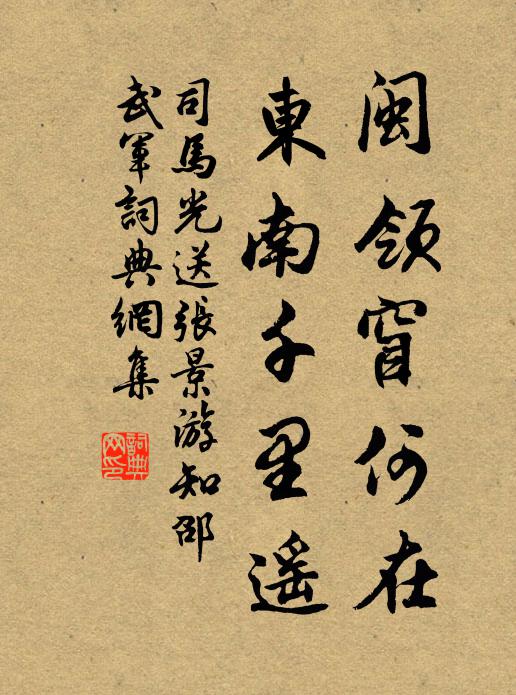 閩領窅何在
東南千里遥
司馬光送張景游知邵
武軍詞典網集
詞典
网印